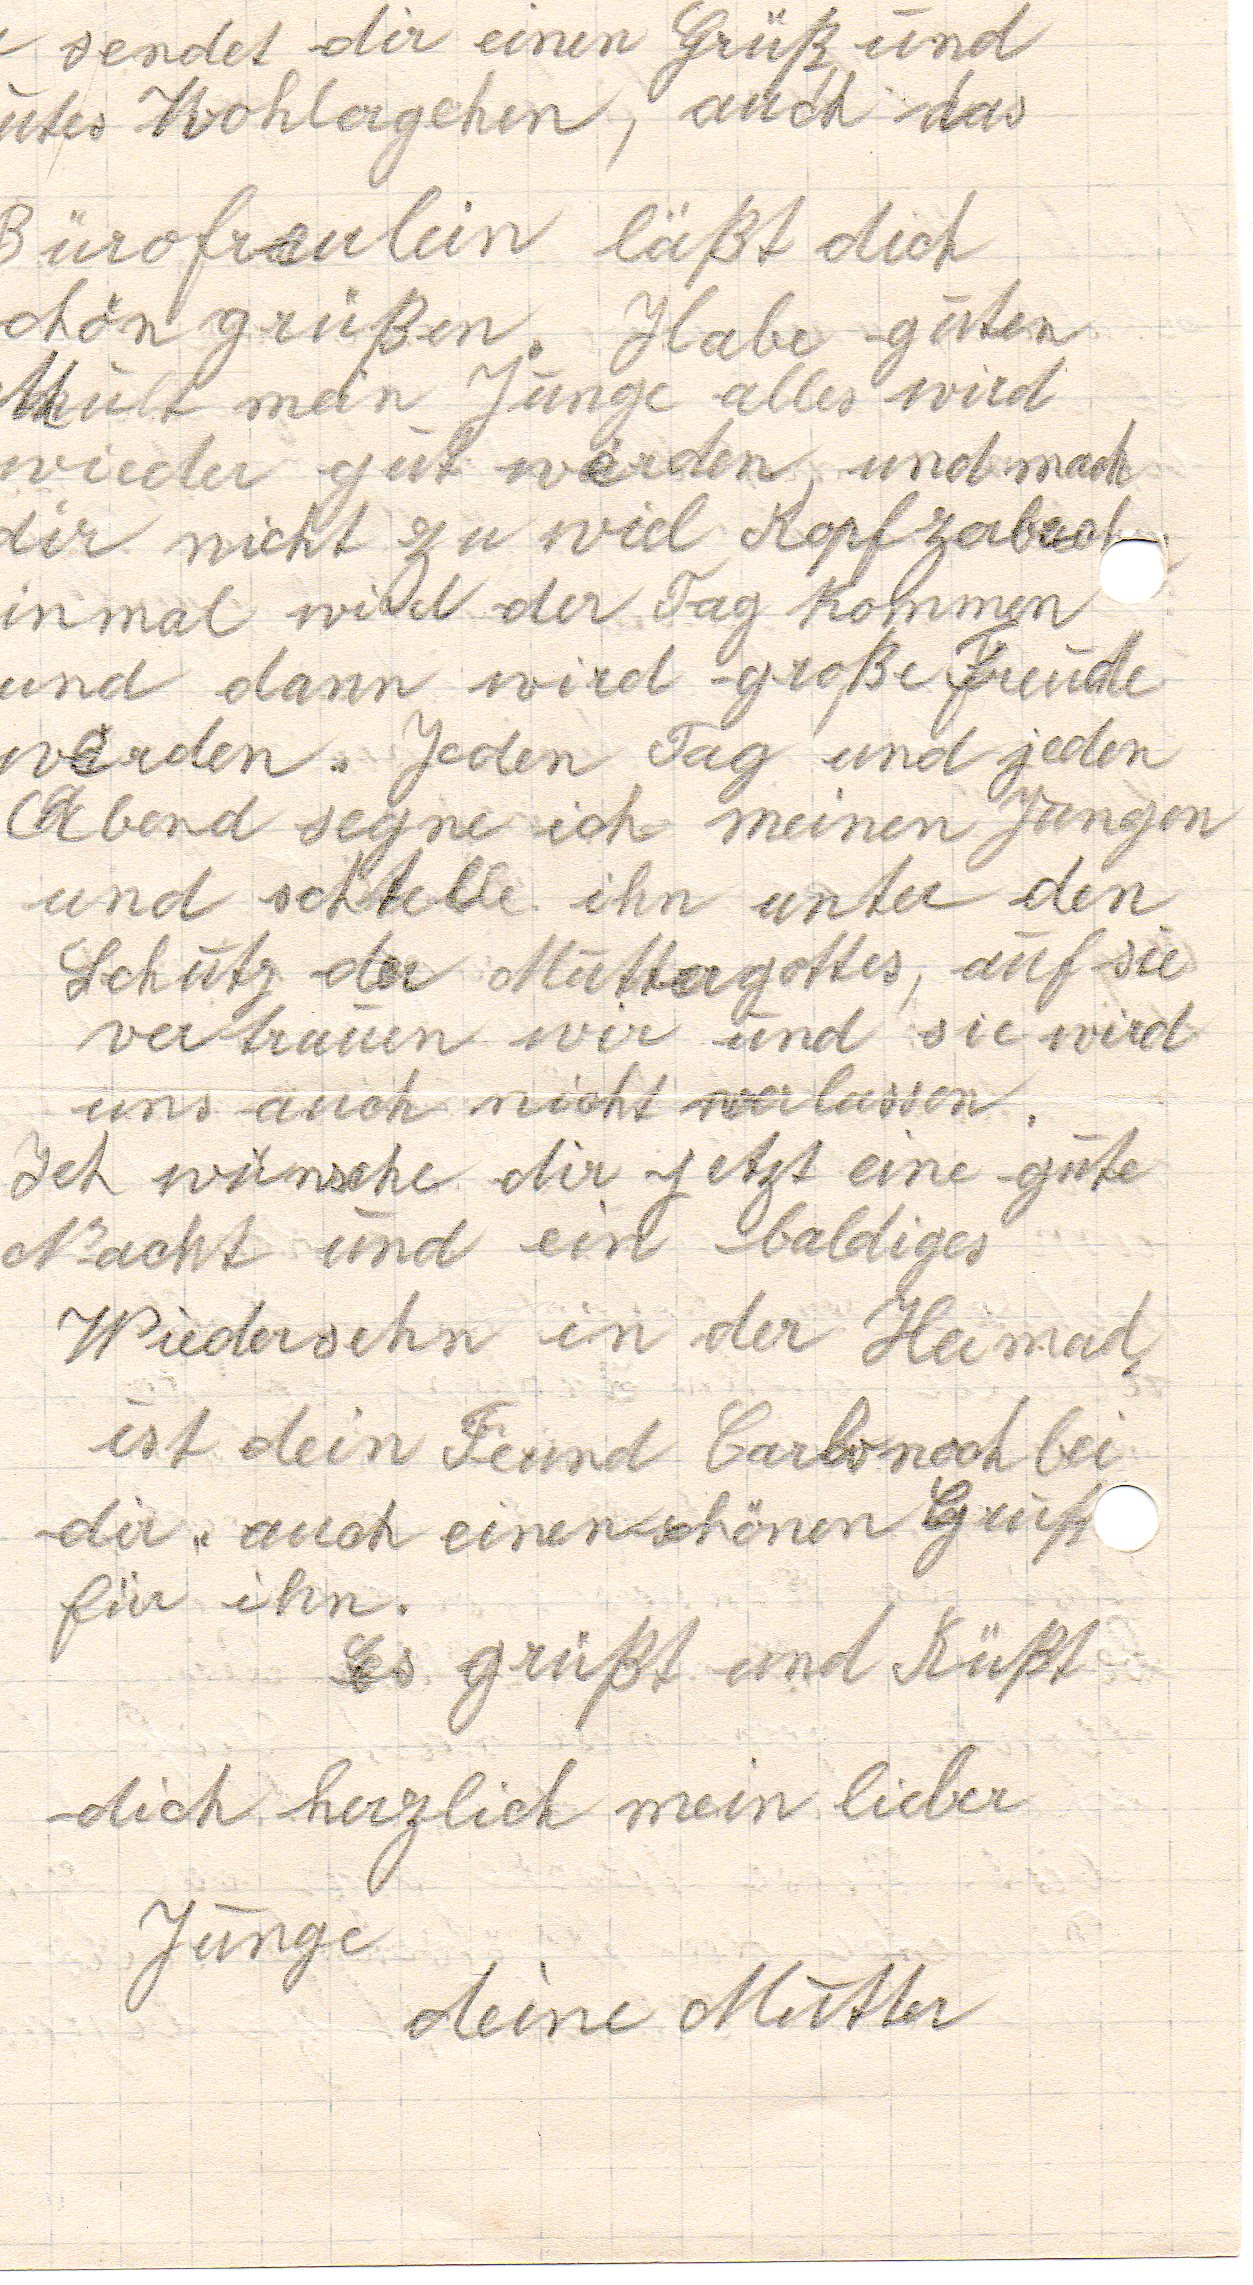 sendet dir einen Grüß und
utes Wohlergehen, auch das
Bürofraulein läßt dich
chön grüßen. Habe guten
Muut mein Junge alles wird
wieder gut werden, und mach
dir nicht zu viel Kopfzabrech
inmal wird der Tag kommen
und dann wird große Freude
werden. Jeden Tag und jeden
Abend segne ich meinen Jungen
und schtelle ihn unter den
Schutz der Muttergottes, auf sie
vertrauen wir und sie wird
uns auch nicht verlassen.
Ich wünsche dir jetzt eine gute
Nacht und ein baldiges
Wiedersehn in der Heimad,
ist dein Feund Carlo noch bei
dir. auch einen schönen Gruß
für ihn.
Es grüßt und Küßt
dich herzlich mein lieber
Junge
deine Mutter